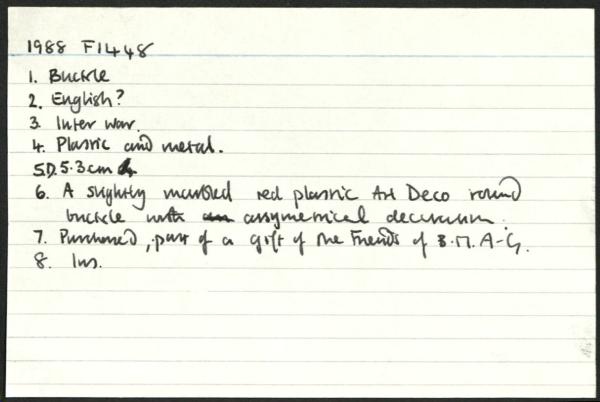 1988 F1448
1. Buckle
2. English?
3. Inter war.
4. Plastic and metal.
5. D. 5.3cm
6. A slightly marbled red plastic Art Deco round
buckle with assymetrical decoration.
7. Purchased, part of a gift of the Friends of B.M.A.G.
8. Ins.